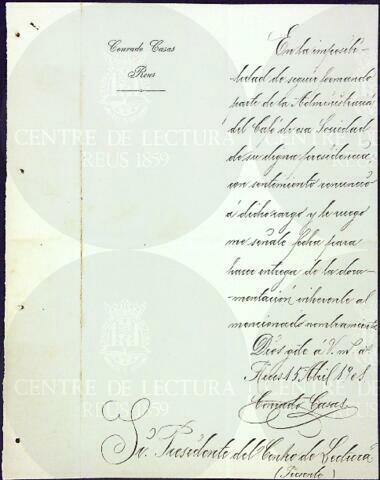 Conrado Casas
Reus
En la imposibi-
lidad de seguir formando
parte de la Administración
del Café de esa Sociedad
de su digna presidencia,
con sentimiento renuncio
á dicho cargo y le ruego
me señale fecha para
hacer entrega de la docu-
mentación inherente al
mencionado nombramiento
Dios gde á V. m.s a.s
Reus 15 Abril 1908
Conrado Casas
Sr. Presidente del Centro de Lectura
(Presente)
CENTRE DE LECTURA
REUS 1859
CENTRE DE LECTURA
REUS 1859